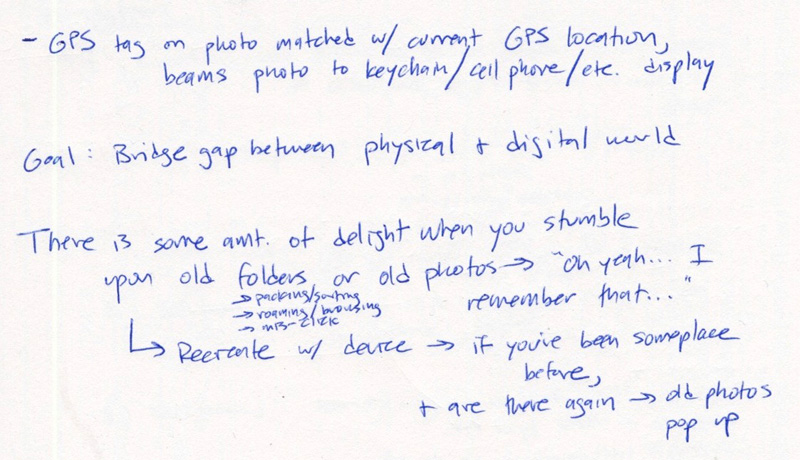 - GPS tag on photo matched w/ current GPS location,
beams photo to keychain/cell phone/etc. display
Goal: Bridge gap between physical + digital world
There is some amt. of delight when you stumble
upon old folders or old photos → "Oh yeah... I
remember that..."
→ packing/sorting
→ roaming/browsing
→ mis-click
↳ Recreate w/ device → if you've been someplace
before,
+ are there again → old photos
pop up